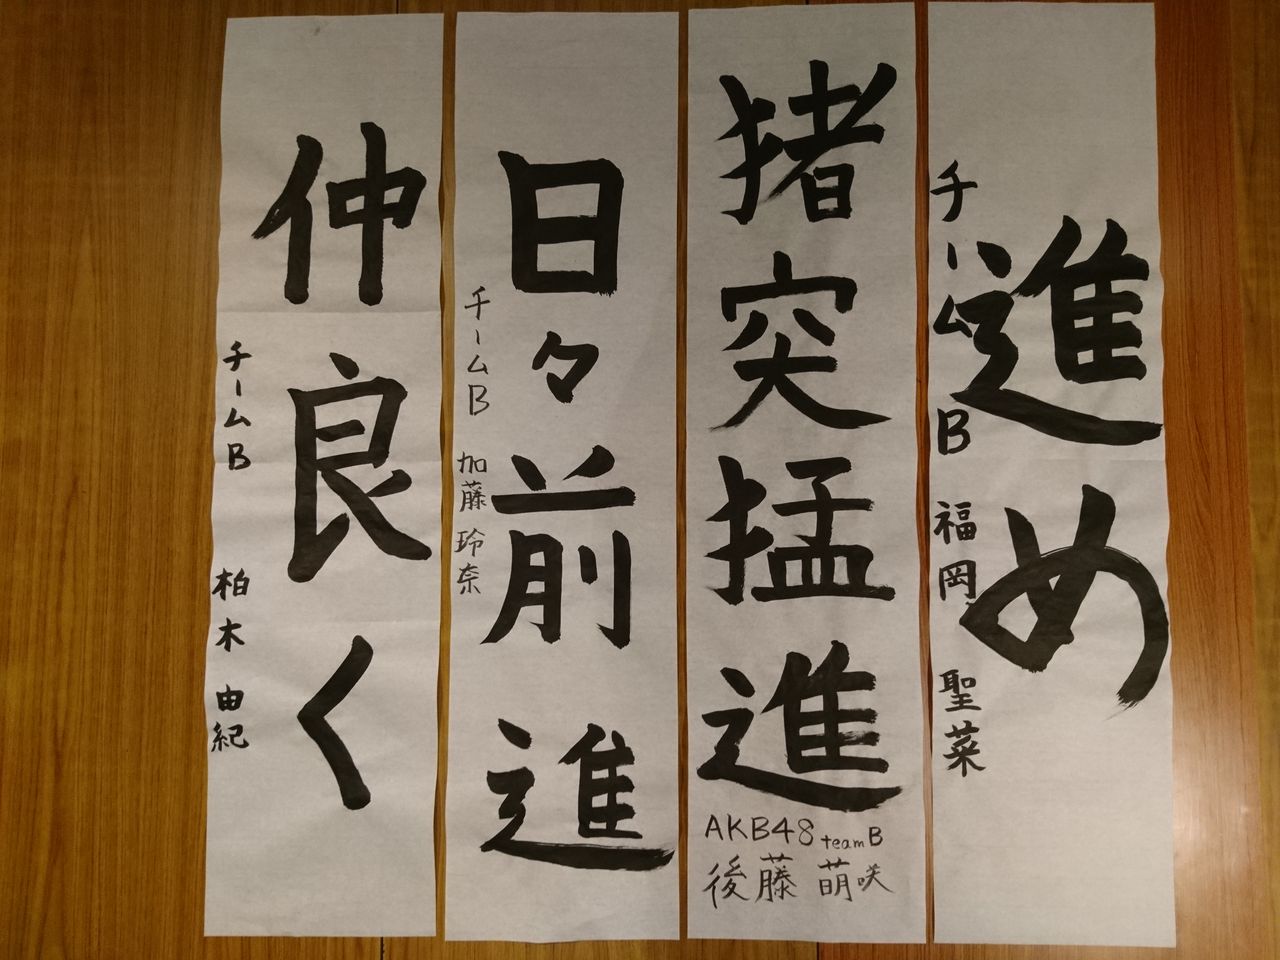 進め
チームB 福岡 聖菜
猪突猛進
AKB48 teamB
後藤 萌咲
日々前進
チームB 加藤玲奈
仲良く
チームB 柏木由紀